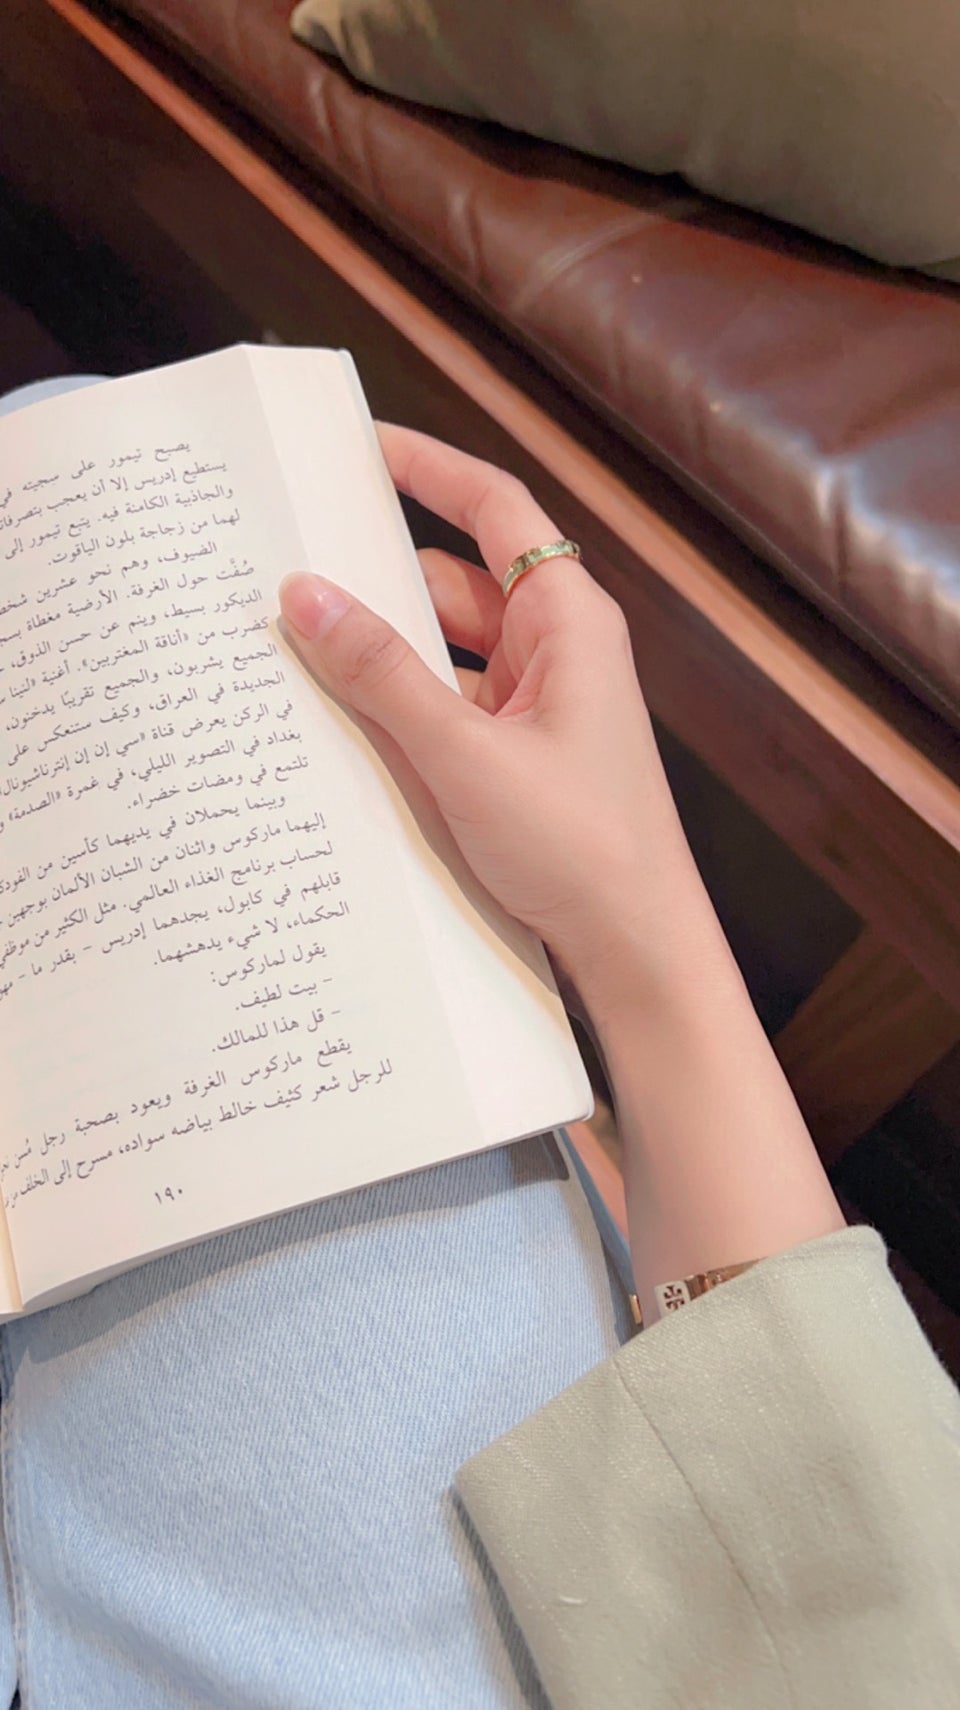 يصبح تيمور على سجيته في
يستطيع إدريس إلا أن يعجب بتصرفات
والجاذبية الكامنة فيه. يتبع تيمور إلى
لهما من زجاجة بلون الياقوت.
الضيوف، وهم نحو عشرين شخص
صُفَّت حول الغرفة. الأرضية مغطاة
الديكور بسيط، وينم عن حسن الذوق،
كضرب من «أناقة المغتربين». أغنية «لنينا
الجميع يشربون، والجميع تقريبًا يدخنون،
الجديدة في العراق، وكيف ستنعكس على
في الركن يعرض قناة «سي إن إن إنترناشيونال
بغداد في التصوير الليلي، في غمرة «الصدمة»
تلتمع في ومضات خضراء.
وبينما يحملان في يديهما كأسين من الفودكا
إليهما ماركوس واثنان من الشبان الألمان بوجهين
لحساب برنامج الغذاء العالمي. مثل الكثير من موظفي
قابلهم في كابول، يجدهما إدريس – بقدر ما –
الحكماء، لا شيء يدهشهما.
يقول لماركوس:
– بيت لطيف.
– قل هذا للمالك.
يقطع ماركوس الغرفة ويعود بصحبة رجل مُسن
للرجل شعر كثيف خالط بياضه سواده، مسرح إلى الخلف
١٩٠